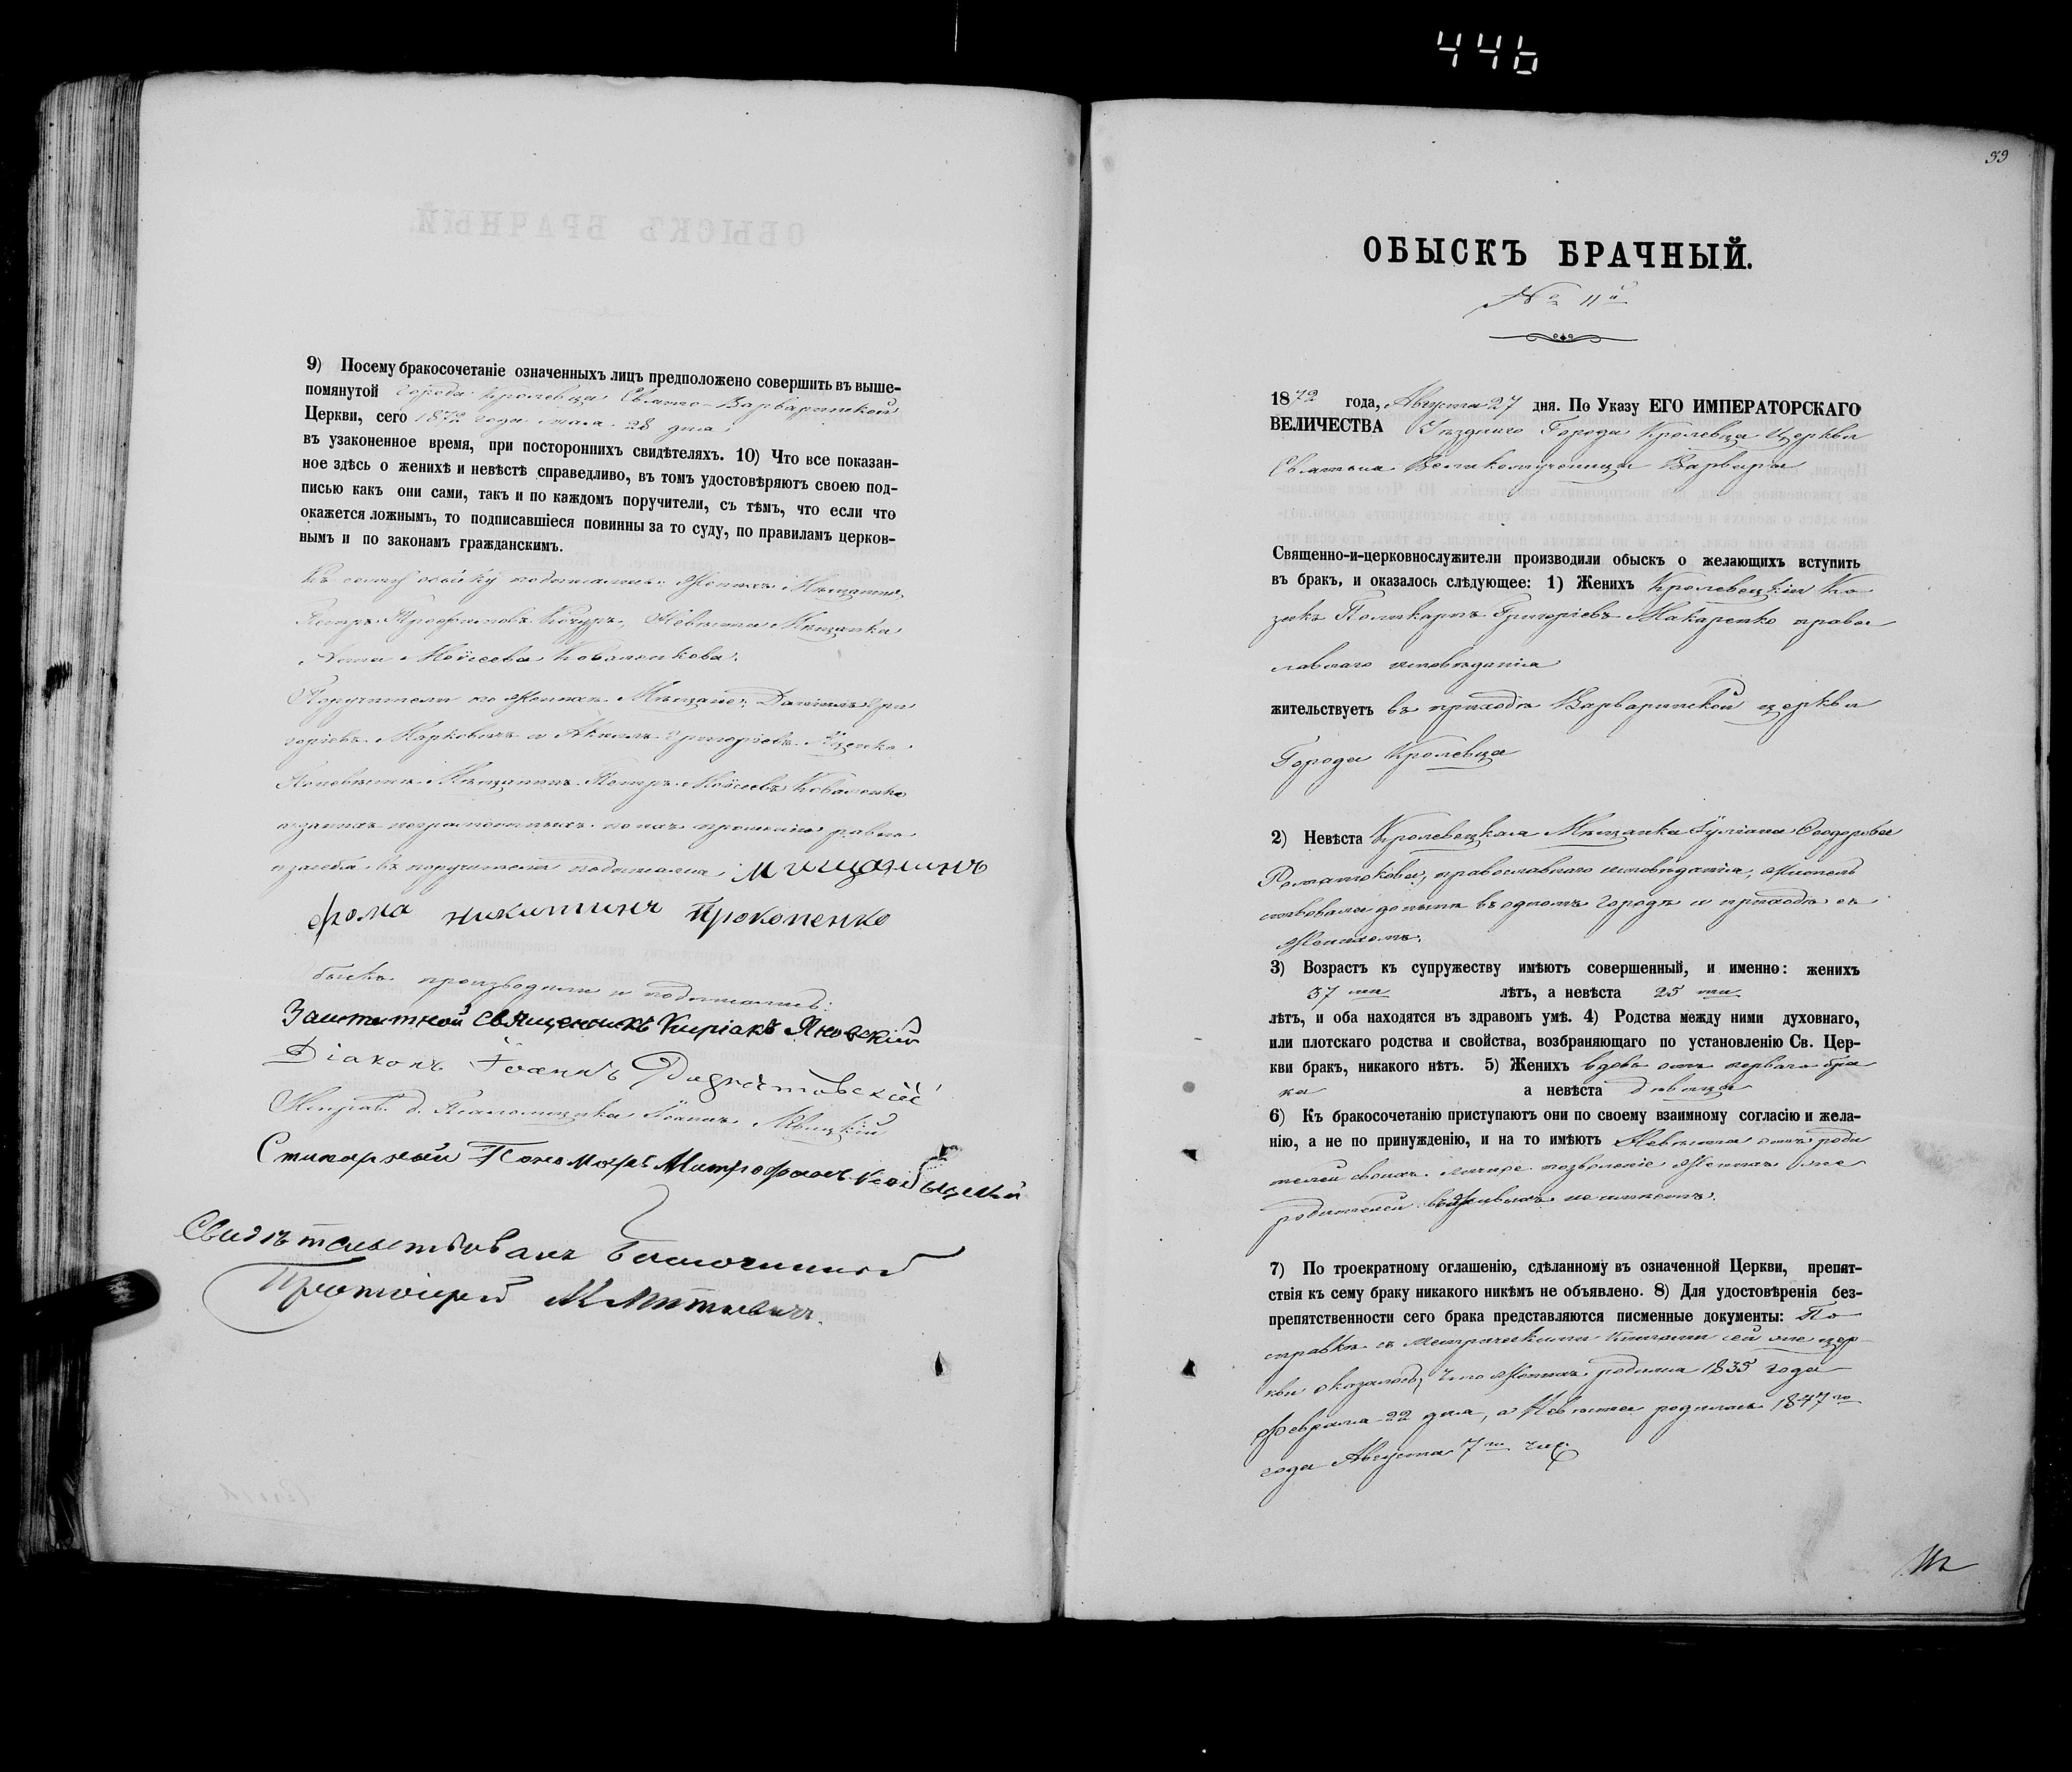 446
9) Посему бракосочетаніе означенныхъ лицъ предположено совершить въ выше-
помянутой города Кролевца Свято-Варваринской
Церкви, сего 1872 года мая 28 дня
въ узаконенное время, при постороннихъ свидѣтеляхъ. 10) Что все показан-
ное здѣсь о женихѣ и невѣстѣ справедливо, въ томъ удостовѣряютъ своею под-
писью какъ они сами, такъ и по каждомъ поручители, съ тѣмъ, что если что
окажется ложнымъ, то подписавшіеся повинны за то суду, по правиламъ церков-
нымъ и по законамъ гражданскимъ.
Къ сему обыску подписались: Женихъ Мѣщанинъ
Петръ Кочуръ, Невѣста Мѣщанка
Анна Моѵсеева Коваленкова.
Поручители по женихѣ Мѣщане: Даніилъ Гри
горіевъ Марковичъ и Григоріевъ Яценко
По невѣстѣ Мѣщанинъ Петръ Моѵсеевъ Коваленко
а за нихъ неграмотныхъ по ихъ прошенію равно
и за себя въ поручители подписался Мищанинъ
фома никитинъ Прокопенко
Обыскъ производили и подписались:
Заштатной священникъ Киріакъ Яновскій
Діаконъ Іоаннъ
Исправ. д. Псаломщика Іоаннъ Левицкій
Стихарный Пономарь Митрофанъ
Свидѣтельствовалъ Благочинный
Протоіерей
39
ОБЫСКЪ БРАЧНЫЙ.
№ 11й
1872 года, Августа 27 дня. По Указу ЕГО ИМПЕРАТОРСКАГО
ВЕЛИЧЕСТВА Уѣзднаго Города Кролевца Церкви
Святыя Великомученицы Варвары
Священно-и-церковнослужители производили обыскъ о желающихъ вступить
въ бракъ, и оказалось слѣдующее: 1) Женихъ Кролевецкій Ко
закъ Поликарпъ Григоріевъ Макаренко право
славнаго исповѣданія
жительствуетъ въ приходѣ Варваринской церкви
Города Кролевца
2) Невѣста Кролевецкая Мѣщанка Іуліана Ѳеодорова
Романюкова, православнаго исповѣданія, жительст
вовала донынѣ въ одномъ городѣ и приходѣ съ
Женихомъ.
3) Возрастъ къ супружеству имѣютъ совершенный, и именно: женихъ
37 ми лѣтъ, а невѣста 25 ти
лѣтъ, и оба находятся въ здравомъ умѣ. 4) Родства между ними духовнаго,
или плотскаго родства и свойства, возбраняющаго по установленію Св. Цер-
кви бракъ, никакого нѣтъ. 5) Женихъ вдовъ отъ перваго бра
ка а невѣста дѣвица
6) Къ бракосочетанію приступаютъ они по своему взаимному согласію и жела-
нію, а не по принужденію, и на то имѣютъ Невѣста отъ роди
телей своихъ позволеніе Женихъ же
родителей въ живыхъ не имѣетъ.
7) По троекратному оглашенію, сдѣланному въ означенной Церкви, препят-
ствія къ сему браку никакого никѣмъ не объявлено. 8) Для удостовѣренія без-
препятственности сего брака представляются писменные документы: По
справкѣ съ Метрическими Книгами сей же цер
кви оказалось, что Женихъ родился 1835 года
февраля 22 дня, а Невѣста родилась 1847 го
года Августа 7 го